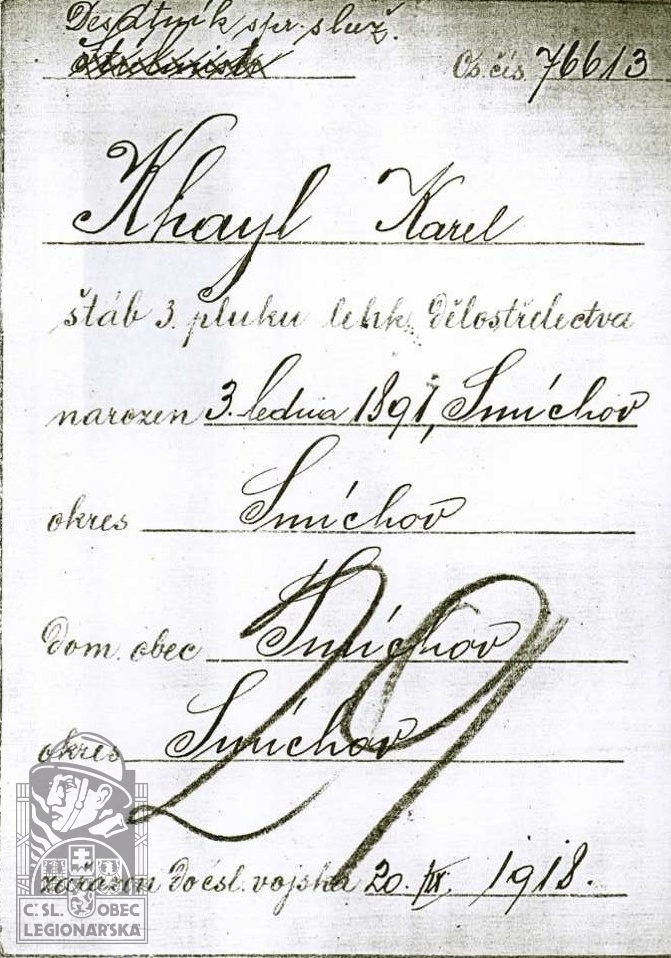 Desátník spr. služ.
Os. čís. 76613
Khayl Karel
štáb 3. pluku lehk. dělostřelectva
narozen 3. ledna 1891, Smíchov
okres Smíchov
dom. obec Smíchov
okres Smíchov
29
zařazen do čsl. vojska 20. IX. 1918.
Č. SL. OBEC
LEGIONÁŘSKÁ